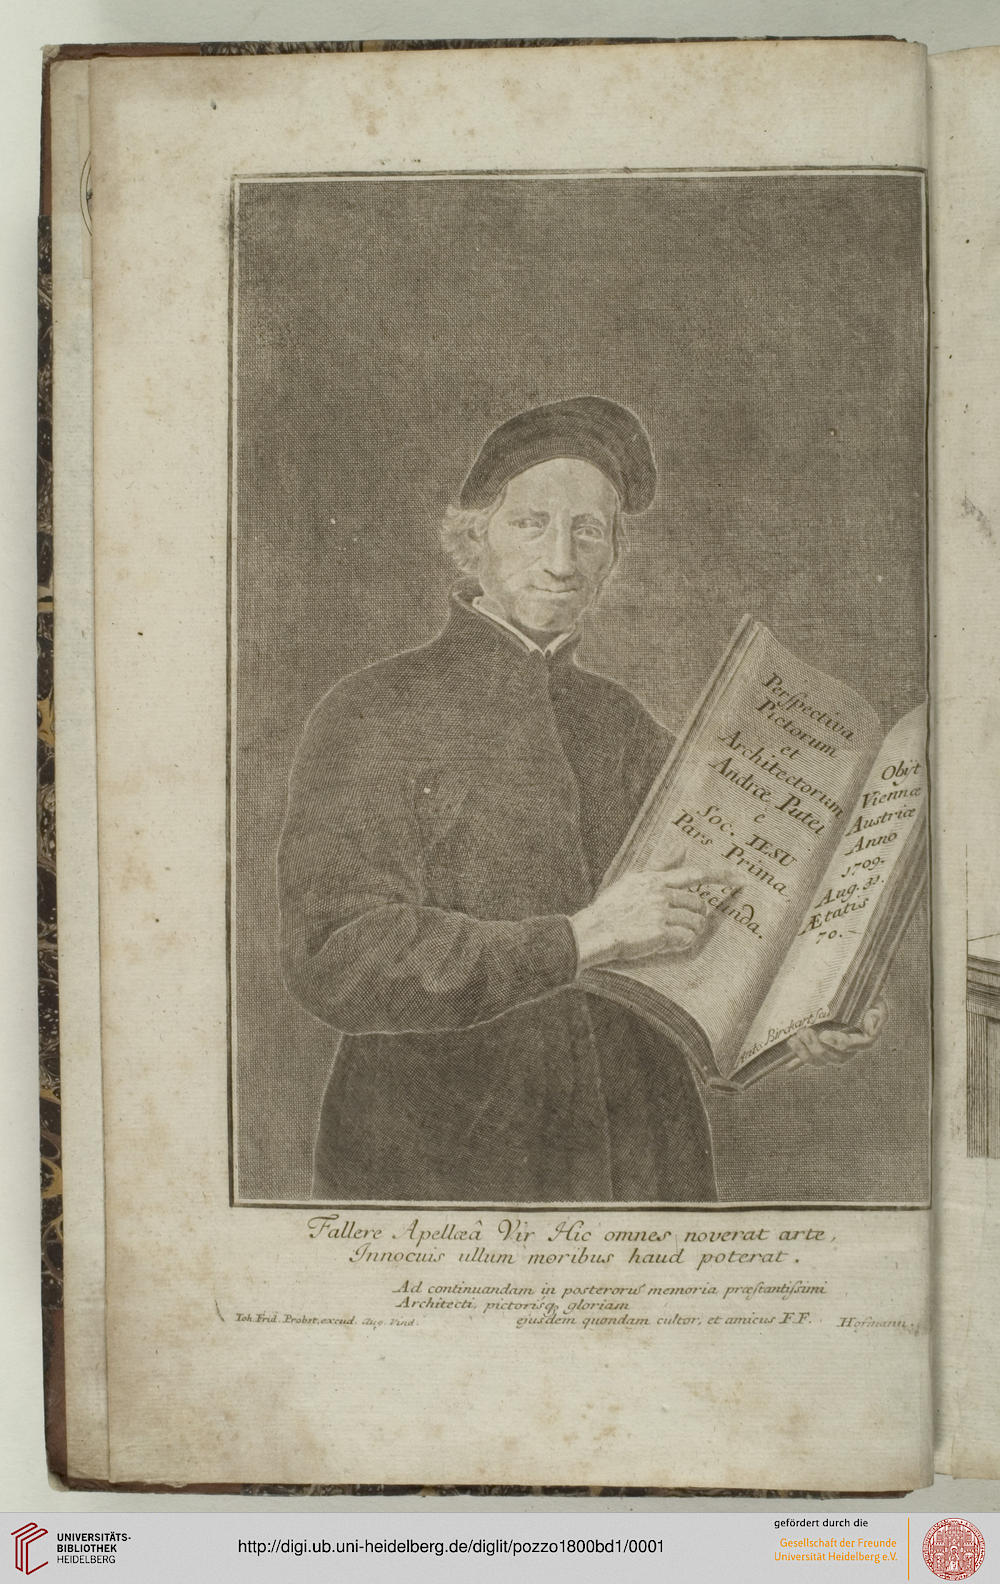 Perſpectiva
Pictorum
et
Architectorum
Andræ Putei
è
Soc. IESU
Pars Prima
et
Secunda.
Obijt
Viennæ
Austriæ
Anno
1709.
Aug. 31.
Ætatis
70.
Anto. Birckart scu
Fallere Apellæâ Vir Hic omnes noverat arte,
Innocuis ullum moribus haud poterat.
Ad continuandam in posterorū memoria præſtantiſsimi
Architecti, pictorisq₃ gloriam
ejusdem quondam cultor, et amicus F. F. Hofmann.
Ioh. Frid. Probst, excud. Aug. Vind.
UNIVERSITÄTS-
BIBLIOTHEK
HEIDELBERG
http://digi.ub.uni-heidelberg.de/diglit/pozzo1800bd1/0001
gefördert durch die
Gesellschaft der Freunde
Universität Heidelberg e.V.